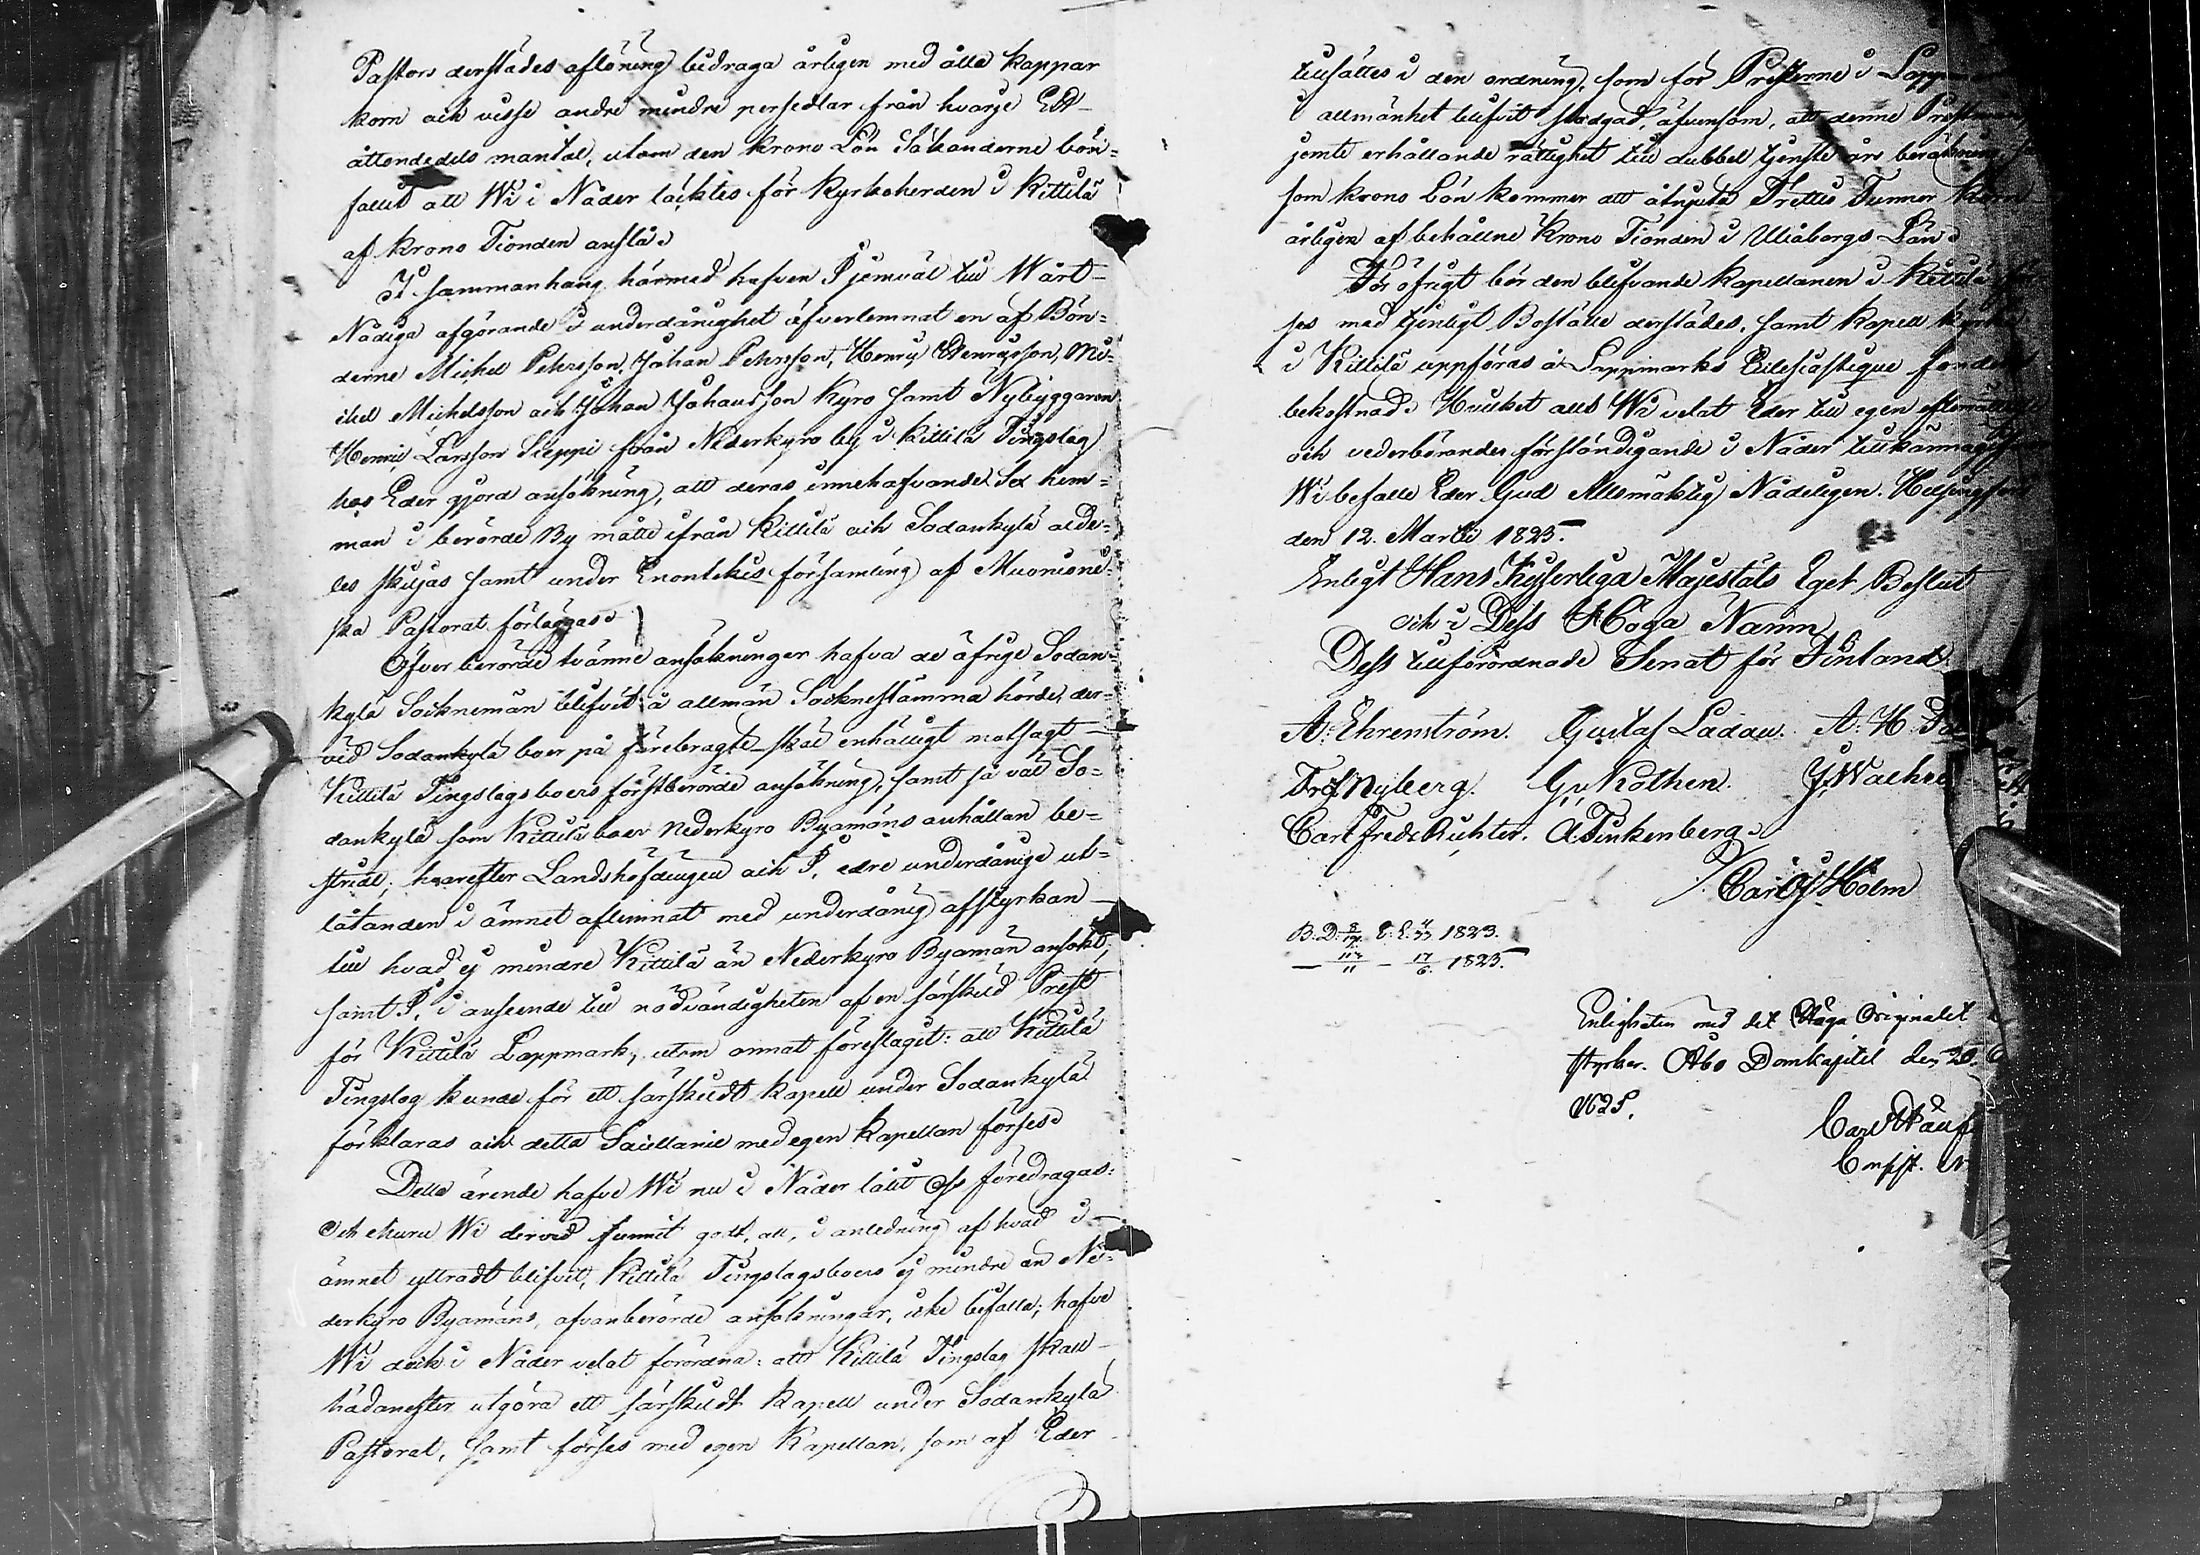 Pastors derstädes aflöning bidraga årligen med åtta kappar
korn och visse andre mindre persedlar från hvarje Ett
åttondedels mantal, utom den krono Lön Sökanderne bön-
fallit att Wi i Nåder täcktes för Kyrkoherden i Kittilä
af krono Tionden anslå.
I sammanhang härmed hafven I jemväl till Wårt
Nådiga afgörande i underdånighet öfverlemnat en af Bön-
derne Michel Pehrsson, Johan Pehrsson, Henric Henricsson, Mi-
chel Michelsson och Johan Johansson Kyro samt Nybyggaren
Henric Larsson Sieppi från Nederkyro by i Kittilä Tingslag
hos Eder gjord ansökning, att deras innehafvande Sex hem-
man i berörde By måtte ifrån Kittilä och Sodankylä alde-
les skiljas samt under Enontekis församling af Muonioni-
ska Pastorat förläggas.
Öfver berörde tvänne ansökningar hafva de öfrige Sodan-
kylä Socknemän blifvit å allmän Socknestämma hörde, der-
vid Sodankylä boer på förebragte skäl enhälligt motsagt
Kittilä Tingslagsboers förstberörde ansökning, samt så väl So-
dankylä som Kittilä boer Nederkyro Byamäns anhållan be-
stridt; hvarefter Landshöfdingen och I, edre underdånige ut-
låtanden i ämnet aflemnat med underdånig afstyrkan
till hvad ej mindre Kittilä än Nederkyro Byamän ansökt,
samt I, i anseende till nödvändigheten af en särskild Prest
för Kittilä Lappmark, utom annat föreslagit: att Kittilä
Tingslag kunde för ett särskildt Kapell under Sodankylä
förklaras och detta Sacellanie med egen Kapellan förses.
Detta ärende hafve Wi nu i Nåder låtit Oss föredragas:
Och ehuru Wi dervid funnit godt, att, i anledning af hvad i
ämnet yttradt blifvit, Kittilä Tingslagsboers ej mindre än Ne-
derkyro Byamäns, ofvanberörde ansökningar, icke bifalla; hafve
Wi dock i Nåder velat förordna: att Kittilä Tingslag skall
hädanefter utgöra ett särskildt Kapell under Sodankylä
Pastorat, samt förses med egen Kapellan, som af Eder
tillsättes i den ordning, som för Presterne i
i allmänhet blifvit stadgad, äfvensom, att denne
jemte erhållande rättighet till dubbel tjenste års beräkning
som krono Lön kommer att åtnjuta Trettio Tunnor Korn
årligen af behållne Krono Tionden i Uleåborgs Län.
För öfrigt bör den blifvande Kapellanen i Kittilä
ses med tjenligt Boställe derstädes, samt Kapell kyrka
i Kittilä uppföras å Lappmarks Ecclesiastique fondens
bekostnad. Hvilket allt Wi velat Eder till egen
och vederbörandes förständigande i Nåder tillkännagifva
Wi befalle Eder Gud Allsmäktig Nådeligen. Helsingfors
den 12. Martii 1823.
Enligt Hans Kejserliga Majestäts Eget Beslut
och i Dess Höga Namn
Dess tillförordnade Senat för Finland.
A: Ehrenström. Gustaf Ladau. A: H.
Nyberg. G. v. Kothen.
Carl Fredr. Richter. A. Finkenberg.
Holm
B: D: E: E: 1823.
1823.
Enligheten med det Höga Originalet
styrker. Åbo Domkapitel den 20.
Carl